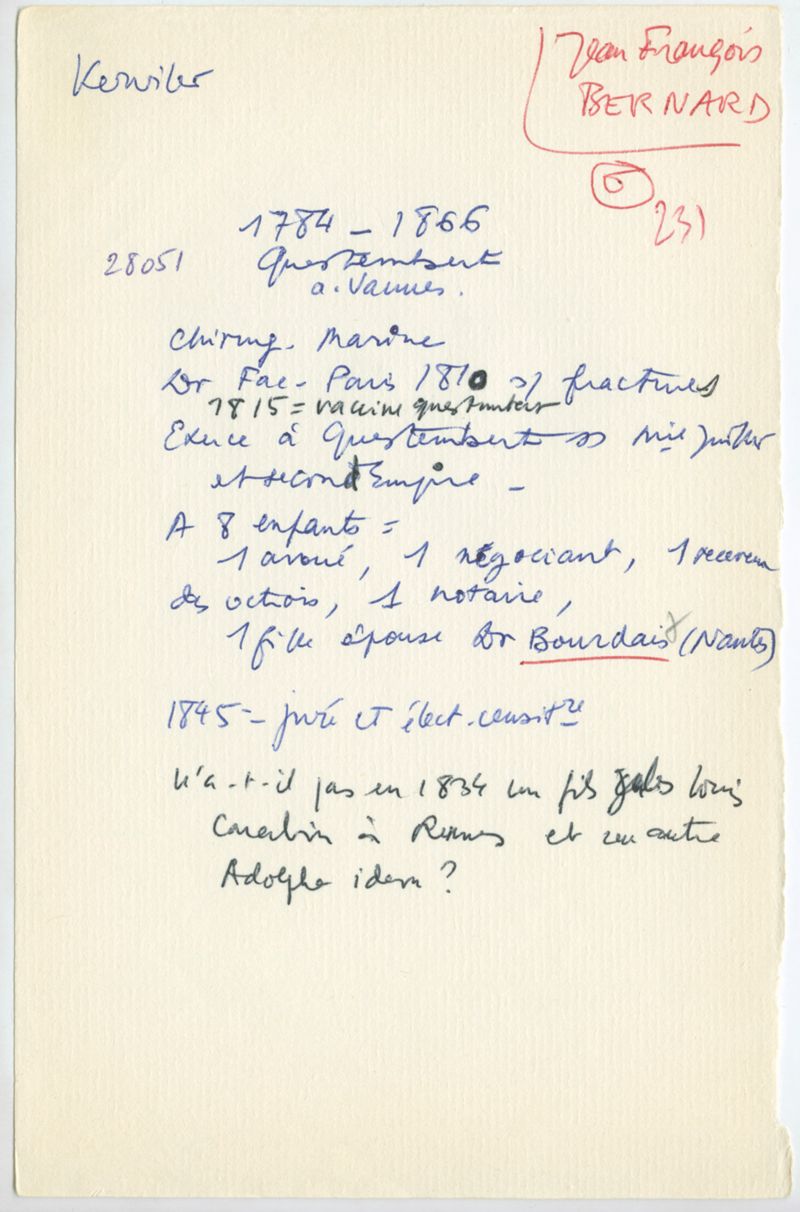 Kerviler
Jean François
BERNARD
6
231
1784 - 1866
28051
Questembert
a. Vannes.
Chirurg. Marine
Dr Fac. Paris 1810 s/ fractures
1815 = vaccine questembert
Exerce à Questembert ss Mie Juillet
et second Empire -
A 8 enfants =
1 avoué, 1 négociant, 1 receveur
des octrois, 1 notaire,
1 fille épouse Dr Bourdais (Nantes)
1845 - juré et élect. censitre
N'a-t-il pas en 1834 un fils Jules Louis
à Rennes et un autre
Adolphe idem ?